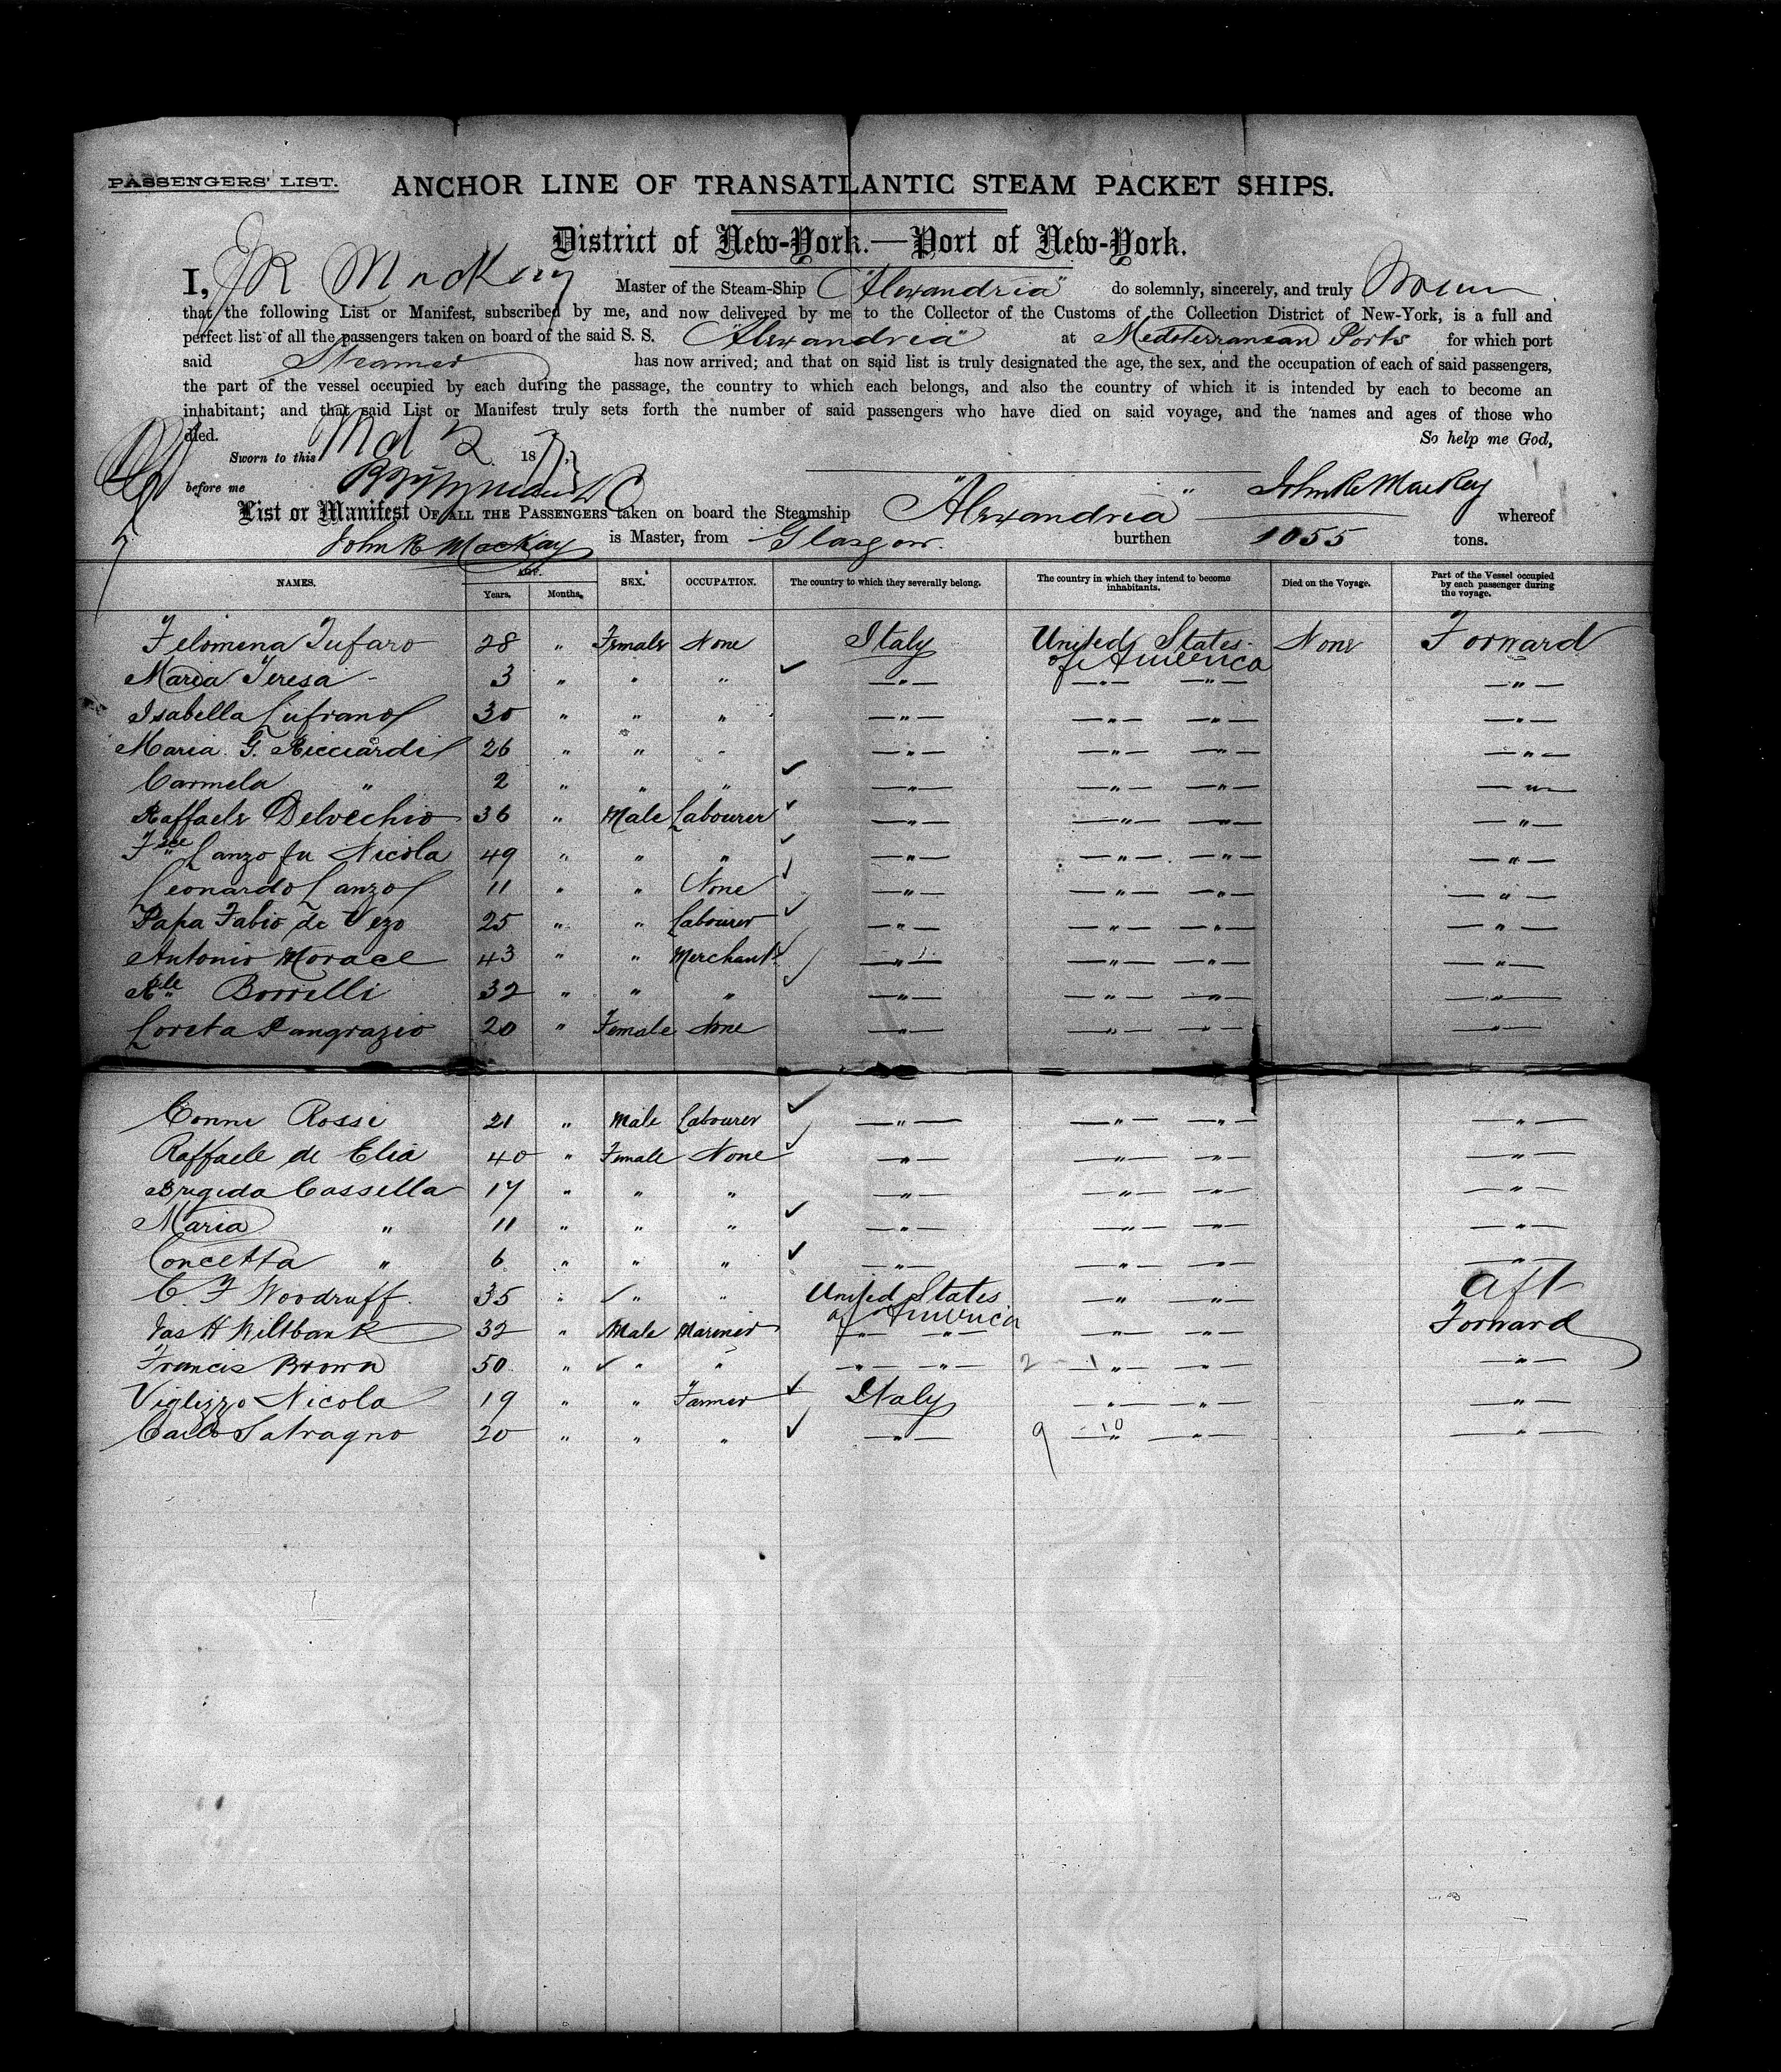 PASSENGERS' LIST. ANCHOR LINE OF TRANSATLANTIC STEAM PACKET SHIPS.
District of New-York.—Port of New-York.
I, J R Mackay Master of the Steam-Ship "Alexandria" do solemnly, sincerely, and truly Swear
that the following List or Manifest, subscribed by me, and now delivered by me to the Collector of the Customs of the Collection District of New-York, is a full and
perfect list of all the passengers taken on board of the said S. S. "Alexandria" at Mediterranean Ports for which port
said Steamer has now arrived; and that on said list is truly designated the age, the sex, and the occupation of each of said passengers,
the part of the vessel occupied by each during the passage, the country to which each belongs, and also the country of which it is intended by each to become an
inhabitant; and that said List or Manifest truly sets forth the number of said passengers who have died on said voyage, and the names and ages of those who
died. So help me God,
Sworn to this 2 18
before me John R Mackay
List or Manifest OF ALL THE PASSENGERS taken on board the Steamship "Alexandria" whereof
John R Mackay is Master, from Glasgow. burthen 1055 tons.
NAMES. AGE. Years. Months. SEX. OCCUPATION. The country to which they severally belong. The country in which they intend to become inhabitants. Died on the Voyage. Part of the Vessel occupied by each passenger during the voyage.
Felomena Tufaro 28 " Female None Italy United States of America None Forward
Maria Teresa 3 " " " " " " "
Isabella Lufrano 30 " " " " " " "
Maria G. Ricciardi 26 " " " " " " "
Carmela " 2 " " " " " " "
Raffaele Delvechio 36 " Male Labourer " " " "
Fsco Lanzo fu Nicola 49 " " " " " " "
Leonardo Lanzo 11 " " None " " " "
Papa Fabio de Vezo 25 " " Labourer " " " "
Antonio Morace 43 " " Merchant " " " "
Rle Borrelli 32 " " " " " " "
Loreta Pangrazio 20 " Female None " " " "
Conni Rossi 21 " Male Labourer " " " "
Raffaele de Elia 40 " Female None " " " "
Brigida Cassella 17 " " " " " " "
Maria " 11 " " " " " " "
Concetta " 6 " " " " " " "
C. F Woodruff 35 " " " United States of America " " Aft
Jas H Wiltbank 32 " Male Mariner " " " " Forward
Francis Brown 50 " " " " " 2 1 " " "
Viglizzo Nicola 19 " " Farmer Italy " " "
Carlo Satragno 20 " " " " 9 10 " " "